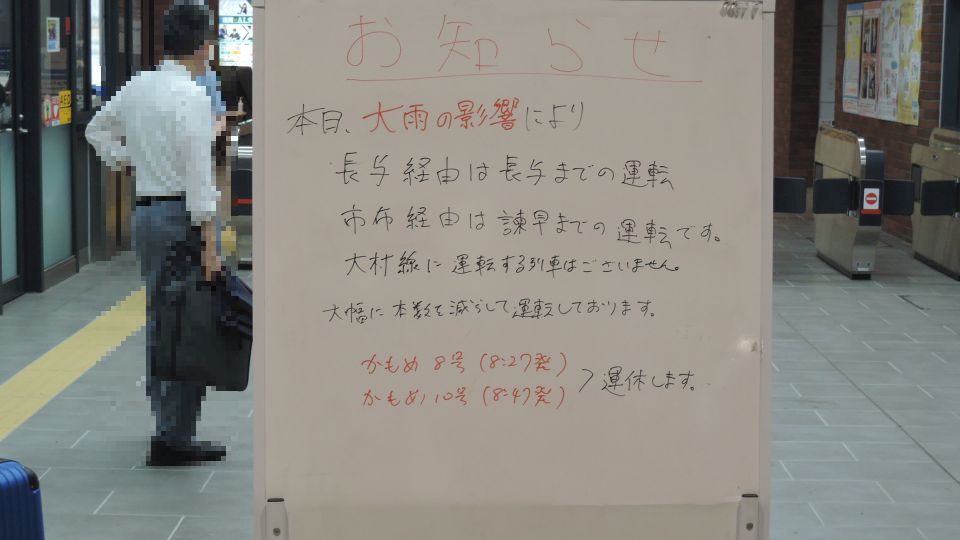 お知らせ
本日、大雨の影響により
長与経由は長与までの運転
市布経由は諫早までの運転です。
大村線に運転する列車はございません。
大幅に本数を減らして運転しております。
かもめ 8号 (8:27発)
かもめ 10号 (8:47発)
運休します。
AED